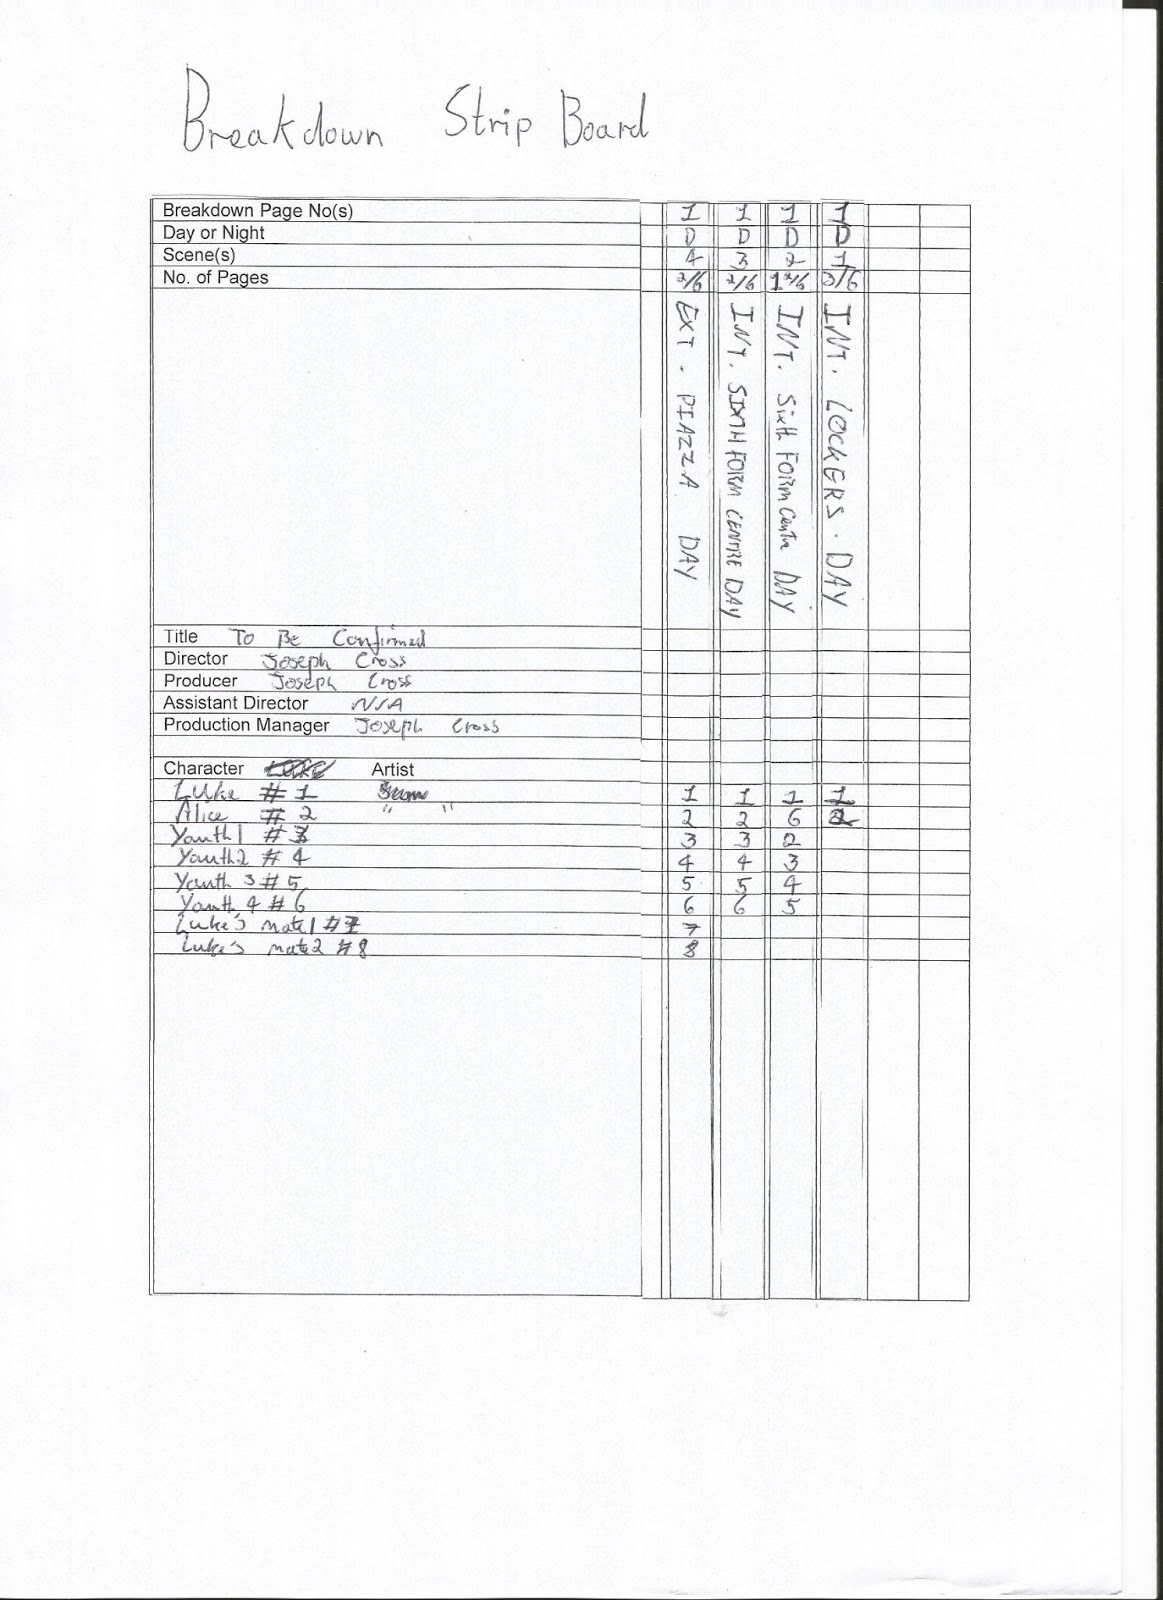 Breakdown Strip Board
Breakdown Page No(s) 1 1 1 1
Day or Night D D D D
Scene(s) 4 3 2 1
No. of Pages 2/6 2/6 1 2/6 3/6
EXT. PIAZZA DAY
INT. SIXTH FORM CENTRE DAY
INT. Sixth FORM Centre DAY
INT. LOCKERS. DAY
Title To Be Confirmed
Director Joseph Cross
Producer Joseph Cross
Assistant Director N/A
Production Manager Joseph Cross
Character Artist
Luke # 1 1 1 1 1
Alice # 2 " " 2 2 6
Youth 1 # 3 3 2
Youth 2 # 4 4 4 3
Youth 3 # 5 5 5 4
Youth 4 # 6 6 6 5
Luke's mate 1 # 7 7
Luke's mate 2 # 8 8